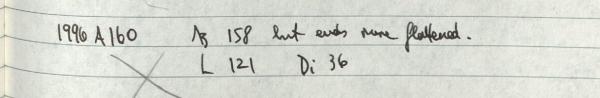 1996 A160 As 158 but ends more flattened.
L 121 Di 36